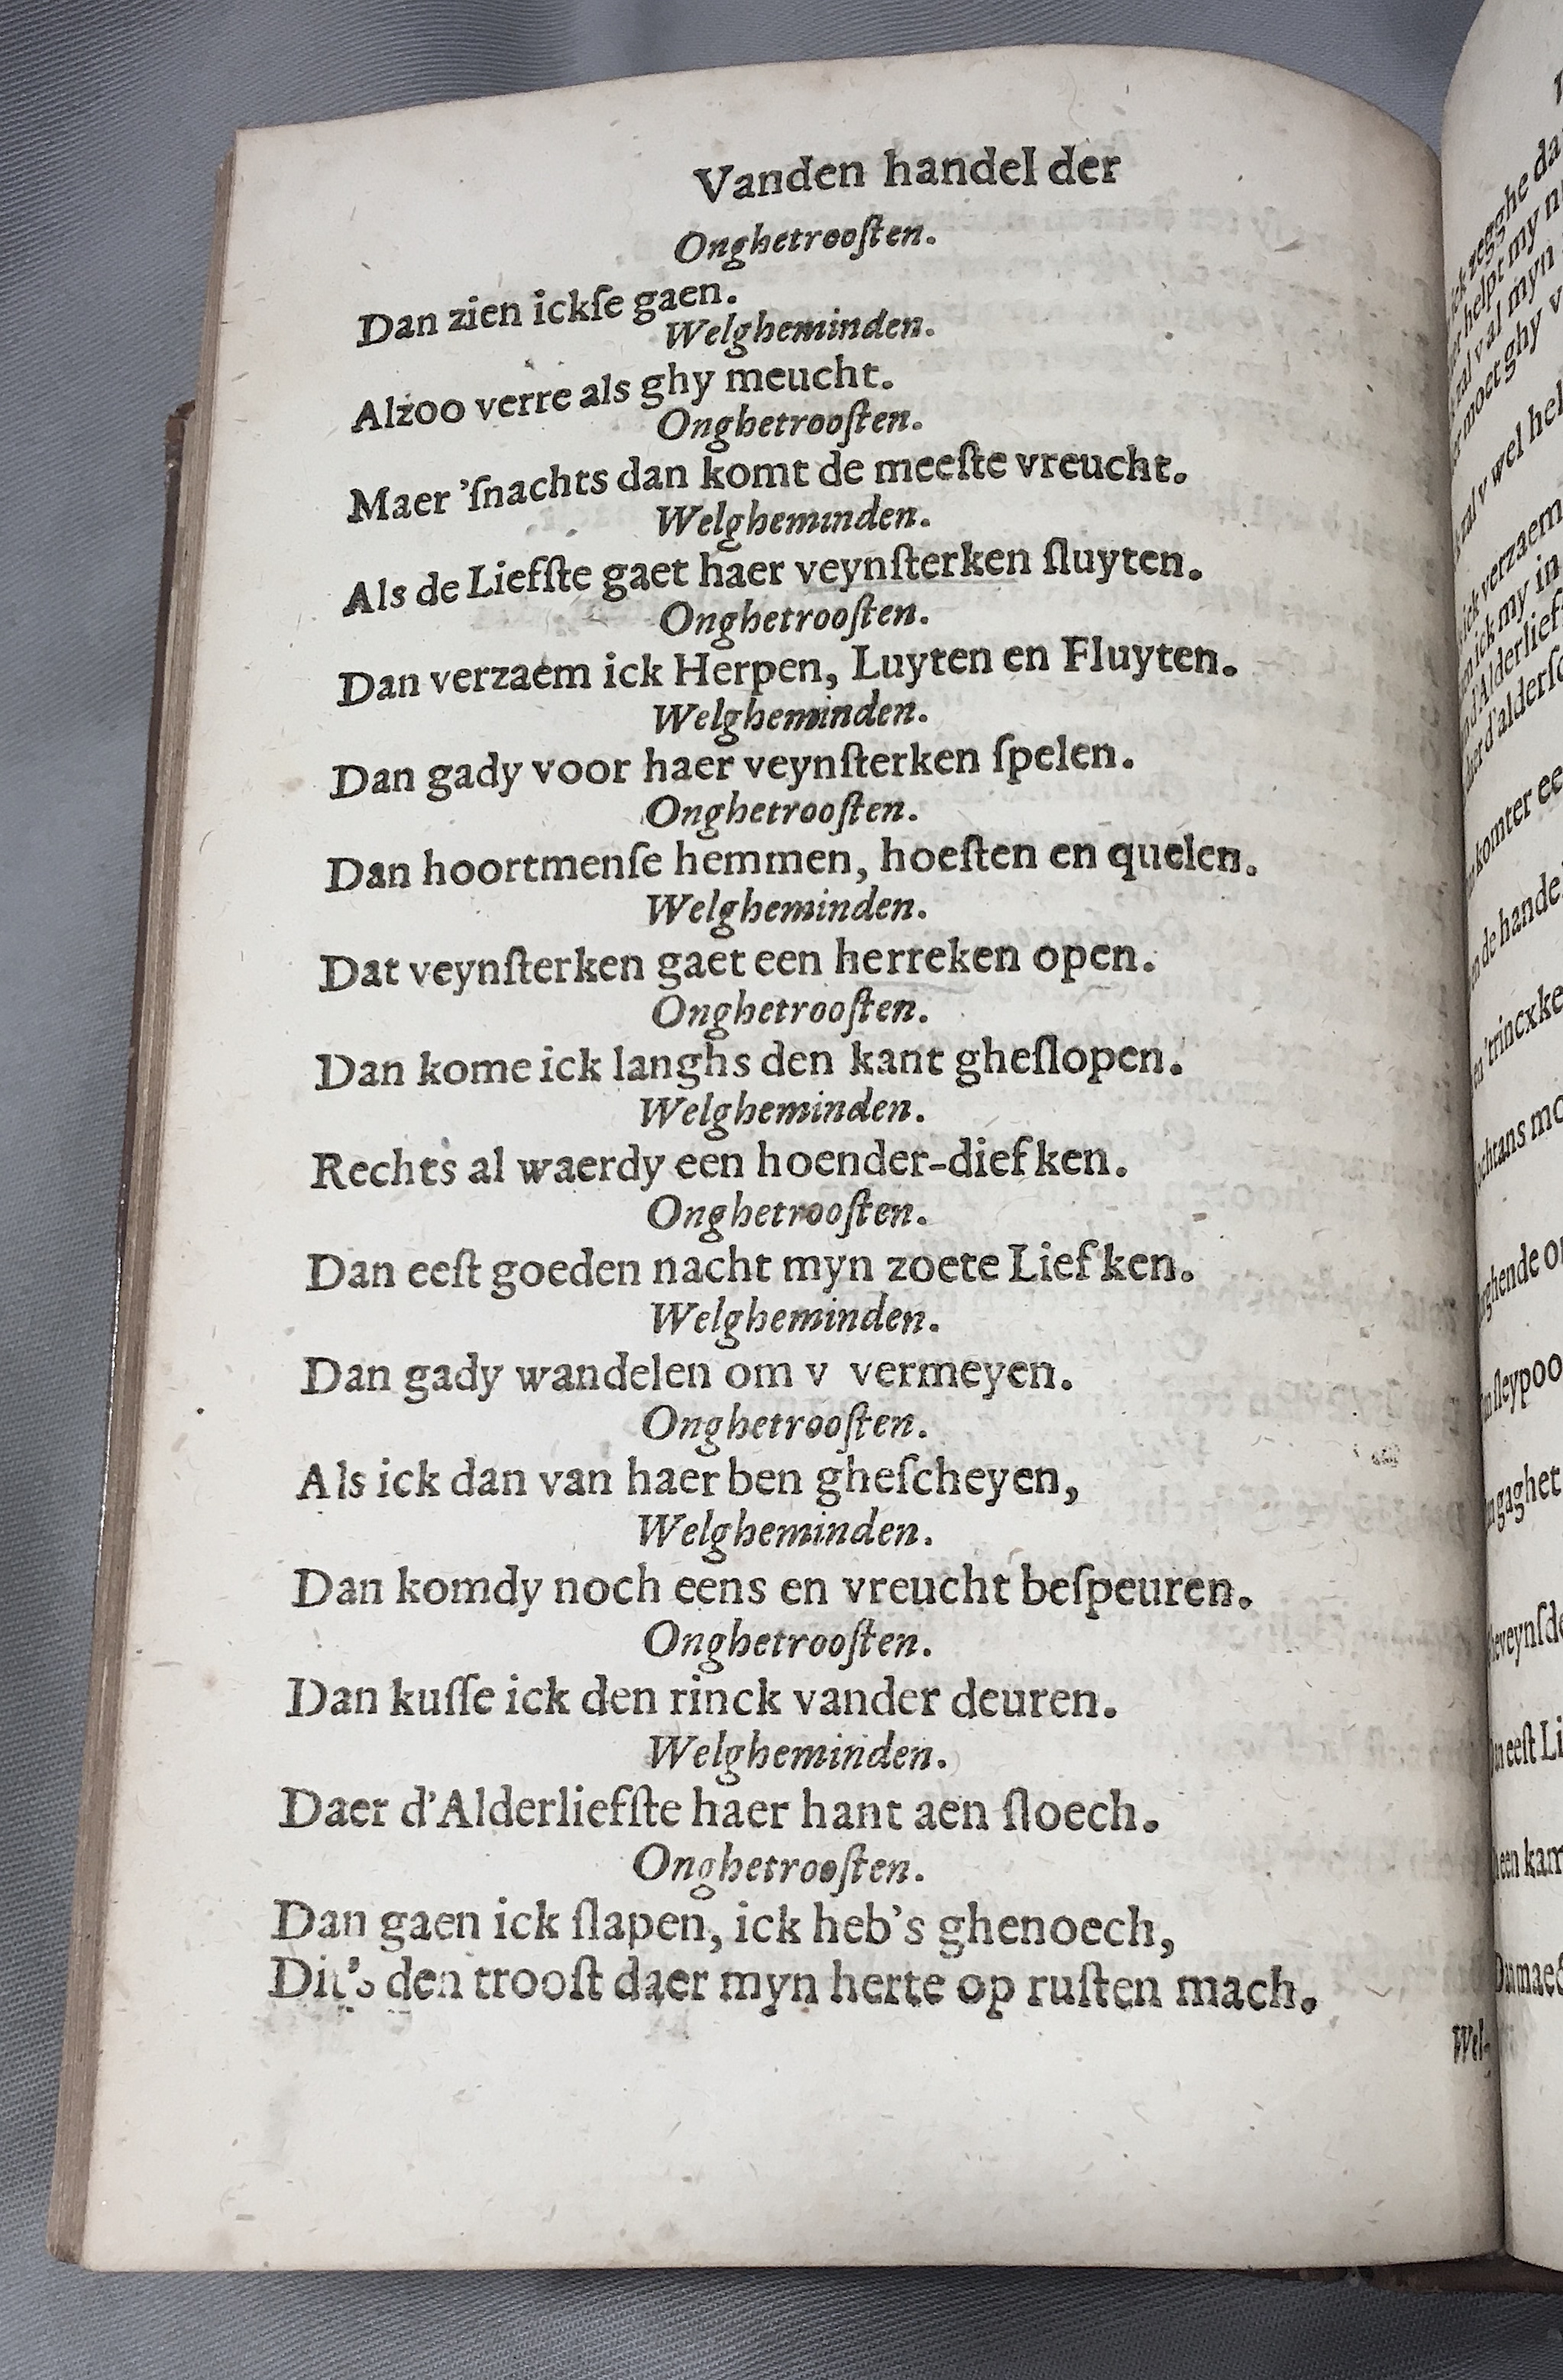 Vanden handel der
Onghetrooſten.
Dan zien ickſe gaen.
Welgheminden.
Alzoo verre als ghy meucht.
Onghetrooſten.
Maer ’ſnachts dan komt de meeſte vreucht.
Welgheminden.
Als de Liefſte gaet haer veynſterken ſluyten.
Onghetrooſten.
Dan verzaem ick Herpen, Luyten en Fluyten.
Welgheminden.
Dan gady voor haer veynſterken ſpelen.
Onghetrooſten.
Dan hoortmenſe hemmen, hoeſten en quelen.
Welgheminden.
Dat veynſterken gaet een herreken open.
Onghetrooſten.
Dan kome ick langhs den kant gheſlopen.
Welgheminden.
Rechts al waerdy een hoender-diefken.
Onghetrooſten.
Dan eeſt goeden nacht myn zoete Liefken.
Welgheminden.
Dan gady wandelen om v vermeyen.
Onghetrooſten.
Als ick dan van haer ben gheſcheyen,
Welgheminden.
Dan komdy noch eens en vreucht beſpeuren.
Onghetrooſten.
Dan kuſſe ick den rinck vander deuren.
Welgheminden.
Daer d’Alderliefſte haer hant aen ſloech.
Onghetrooſten.
Dan gaen ick ſlapen, ick heb’s ghenoech,
Dit’s den trooſt daer myn herte op ruſten mach.
Wel-
ick zegghe
helpt my
zal v al myn
moet ghy
zal v wel
ick verzaem
ick my in
d’Alderlief
d’alderſc
komter
de hande
’trincxke
ſleypoo
gaghet
eeſt
een